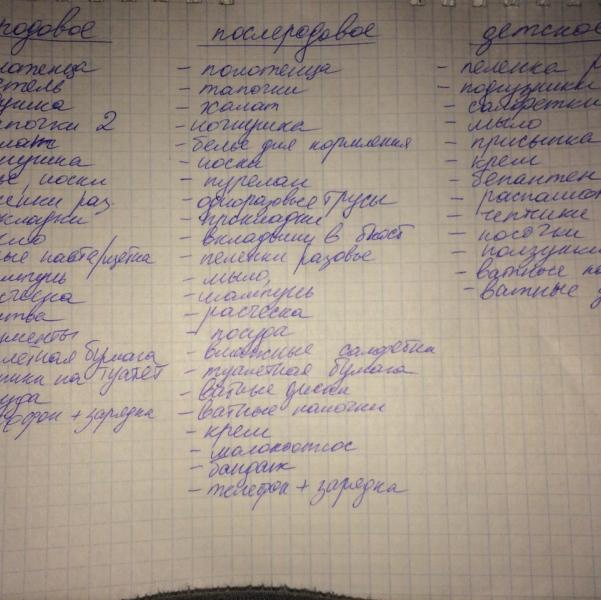 родовое
лотенца
тель
ушка
почки 2
лат
ушка
ые, носки
ёнки раз.
кладки
ло
ные паста/щётка
ампунь
счёска
тва
ументы
летная бумага
ики на туалет
уда
фон + зарядка
послеродовое
- полотенца
- тапочки
- халат
- ночнушка
- бельё для кормления
- носки
- пурелан
- одноразовые трусы
- прокладки
- вкладыши в бюст
- пеленки разовые
- мыло,
- шампунь
- расческа
- посуда
- влажные салфетки
- туалетная бумага
- ватные диски
- ватные палочки
- крем
- молокоотсос
- бандаж
- телефон + зарядка
детское
- пеленка р
- подгузники
- салфетки
- мыло
- присыпка
- крем
- бепантен
- распашон
- чепчики
- носочки
- ползунки
- ватные па
- ватные д